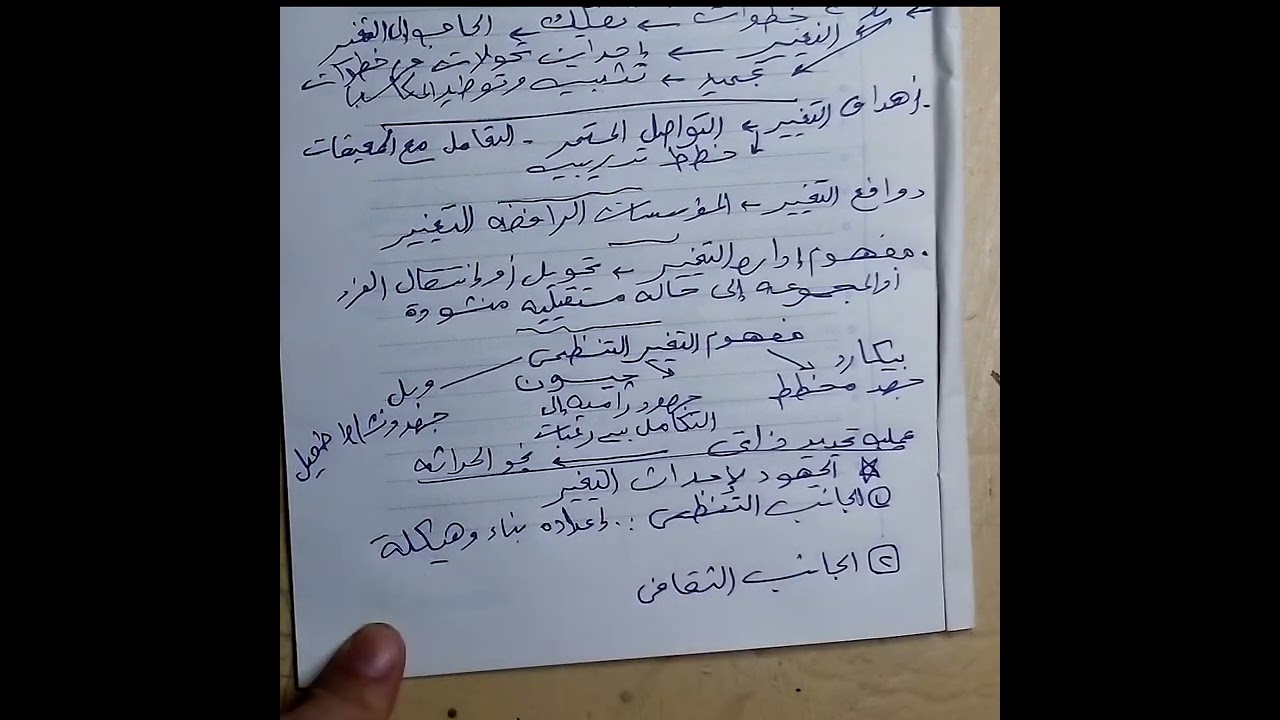 خطوات ← تفكيك ← الحاجه إلى التغير
التغيير ← إحداث تحولات من خطوات
تجميد ← تثبيت وتوطيد المكاسب
- أهداف التغيير ← التواصل المستمر - التعامل مع المعيقات
خطط تدريبيه
دوافع التغيير ← المؤسسات الرافضه للتغيير
. مفهوم إداره التغيير ← تحويل أو إنتقال الفرد
أو المجموعه إلى حاله مستقبليه منشودة
مفهوم التغير التنظيمى
بيكارد جيسون ويل
جهد مخطط جهود راميه إلى جهد ونشاط طويل
التكامل بين رغبات
عمليه تجييد ذاتى ← نحو الحداثه
☆ الجهود لإحداث التغيير
① الجانب التنظيمى :. إعاده بناء وهيكلة
② الجانب الثقافى